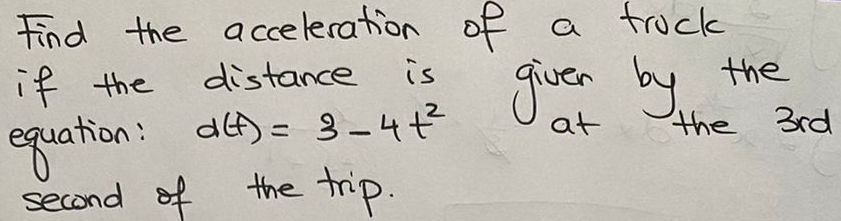 Find the acceleration of a truck
if the distance is given by the
equation: d(t) = 3 - 4t² at the 3rd
second of the trip.